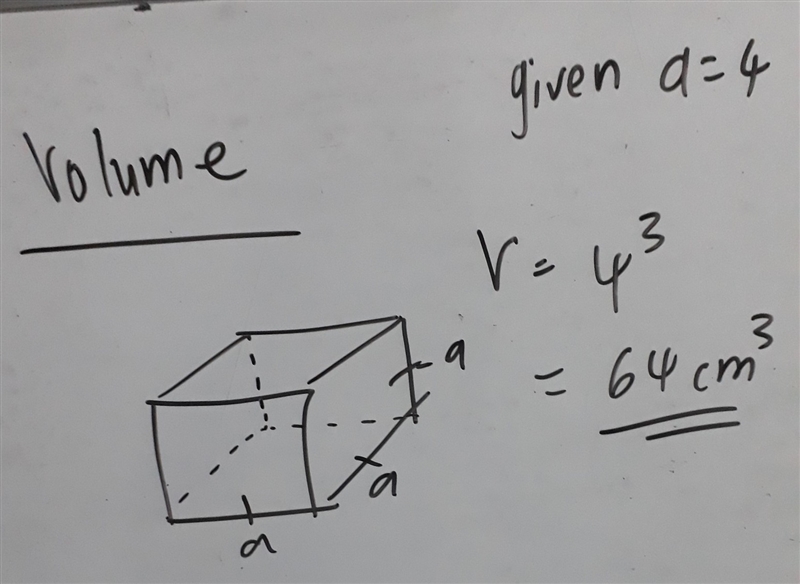 given a=4
Volume
V = 4³
= 64 cm³
a
a
a